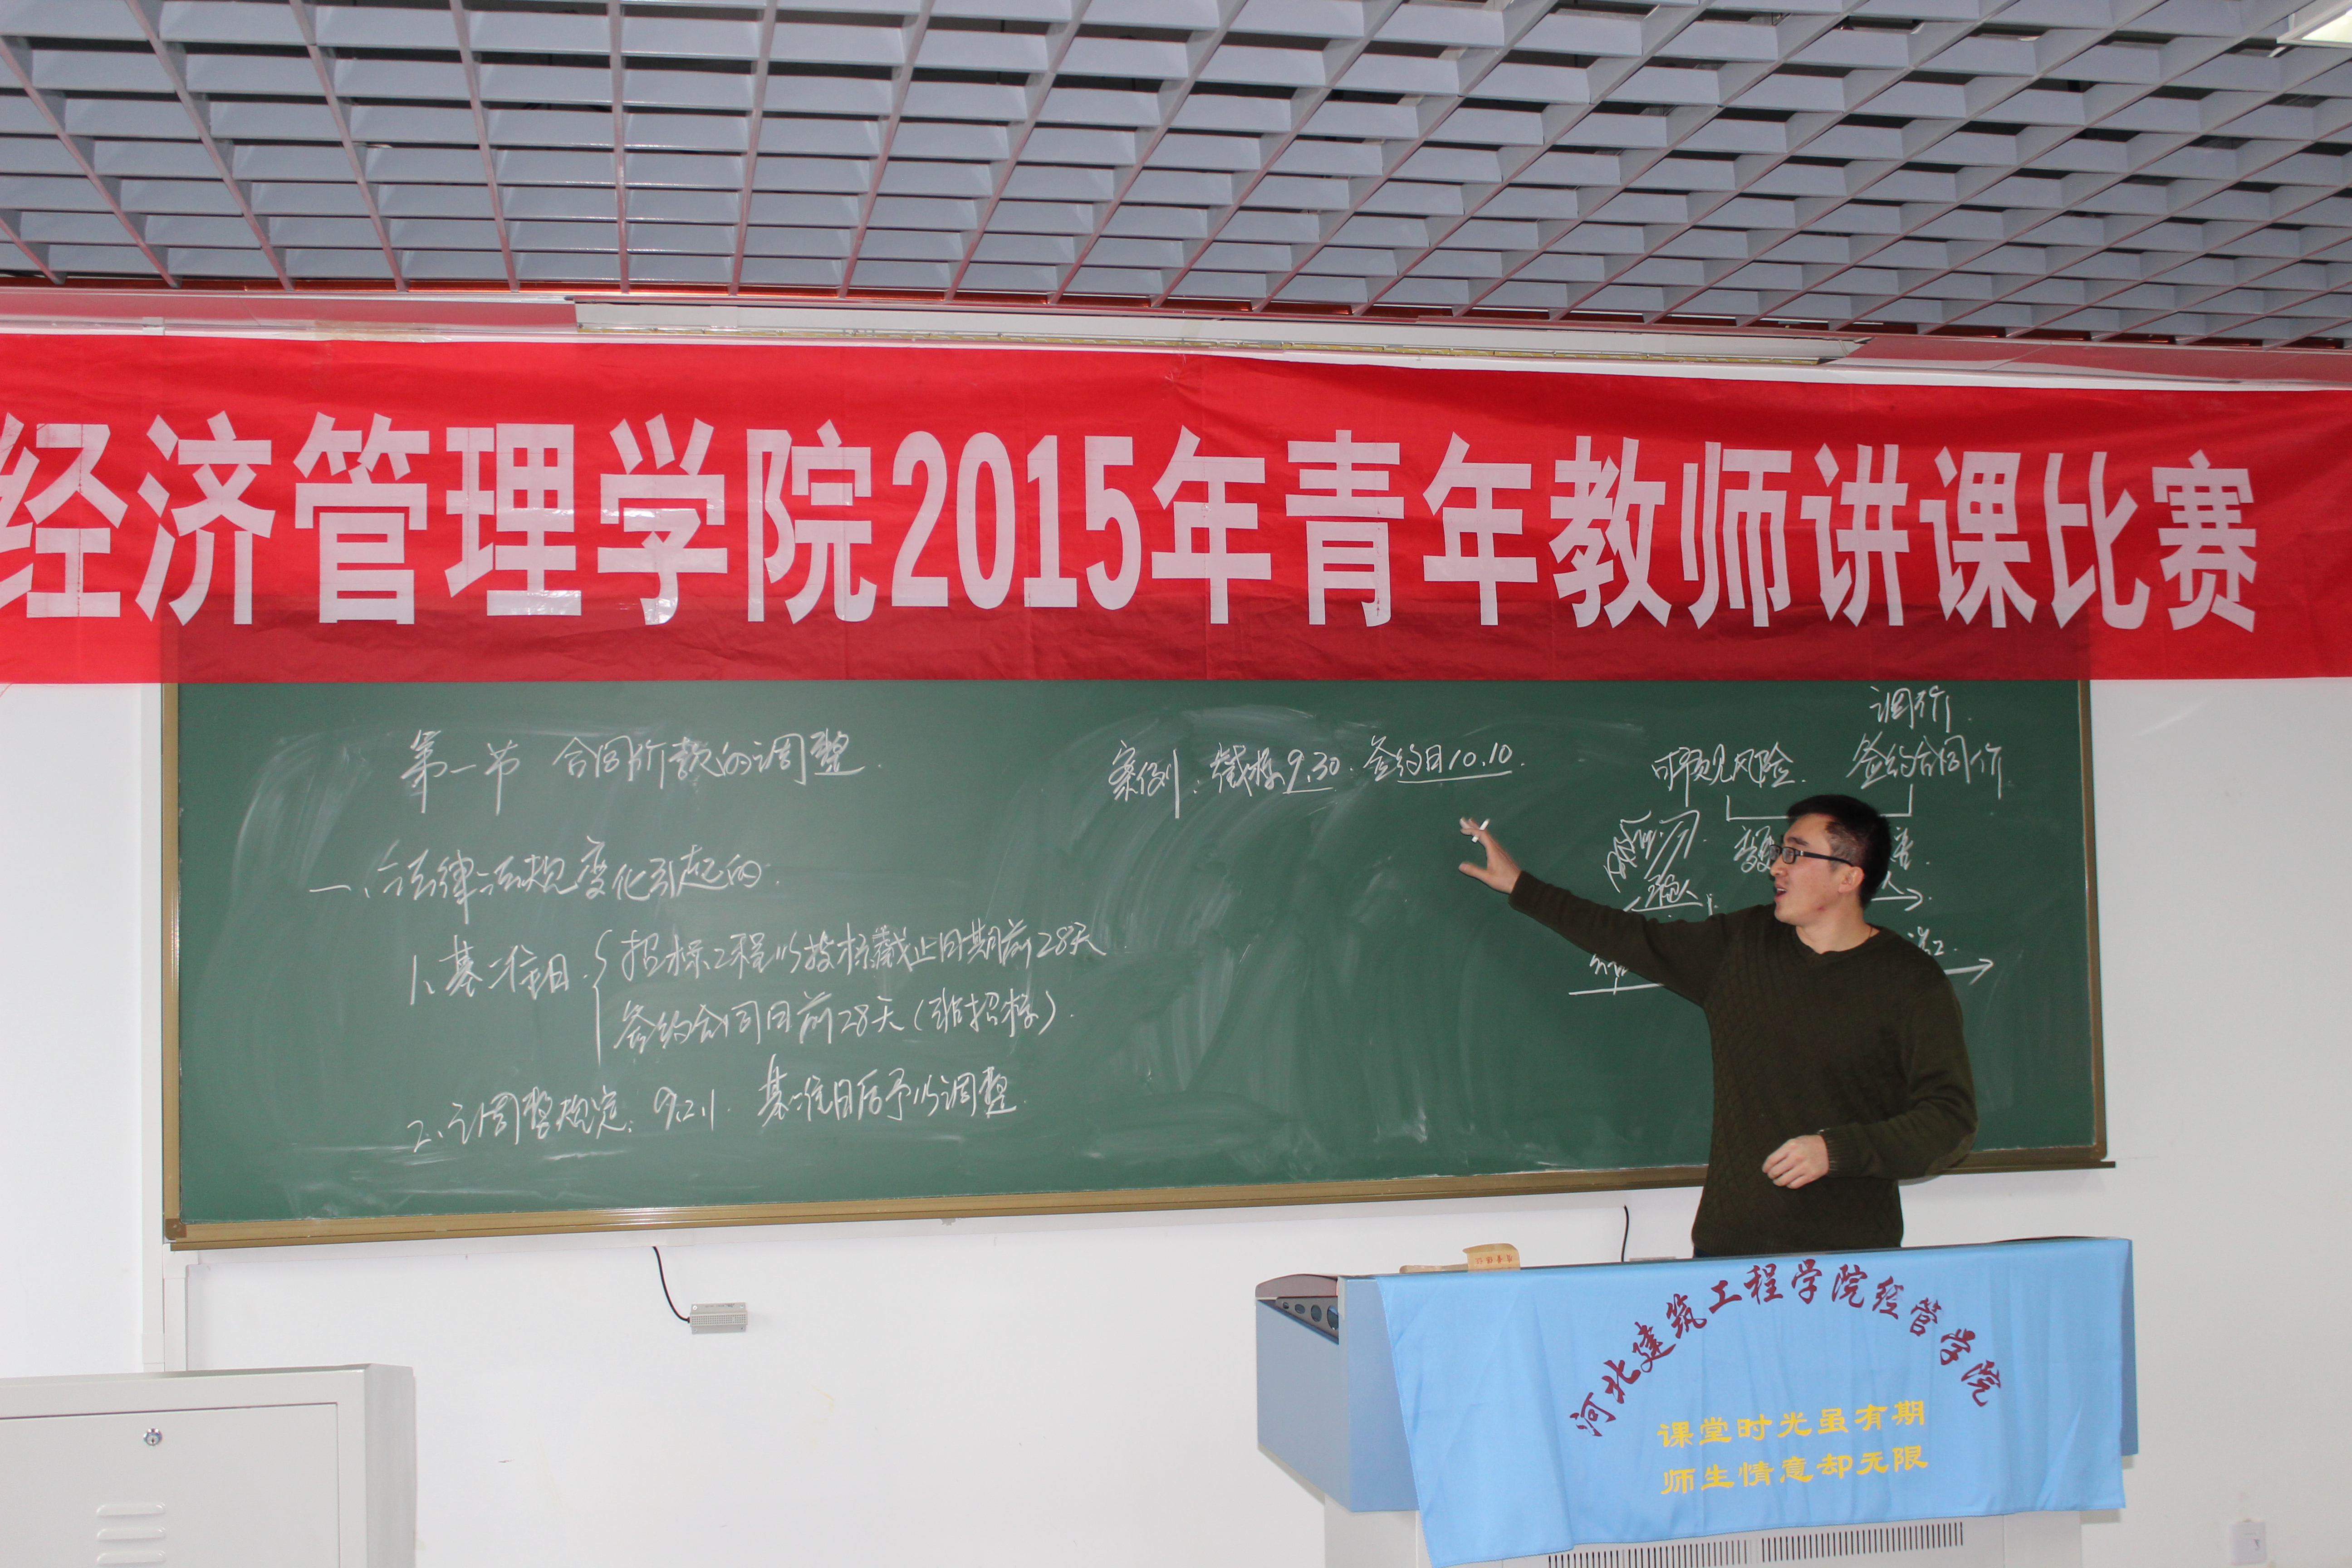 经济管理学院2015年青年教师讲课比赛
第一节 合同价款的调整.
一、法律法规变化引起的.
1、基准日.
招标工程以投标截止日期前28天
签约合同日前28天(非招标).
2、调整规定: 9.2.1. 基准日后予以调整.
案例: 截标9.30. 签约日10.10.
调价.
可预见风险. 签约合同价
河北建筑工程学院经管学院
课堂时光虽有期
师生情意却无限